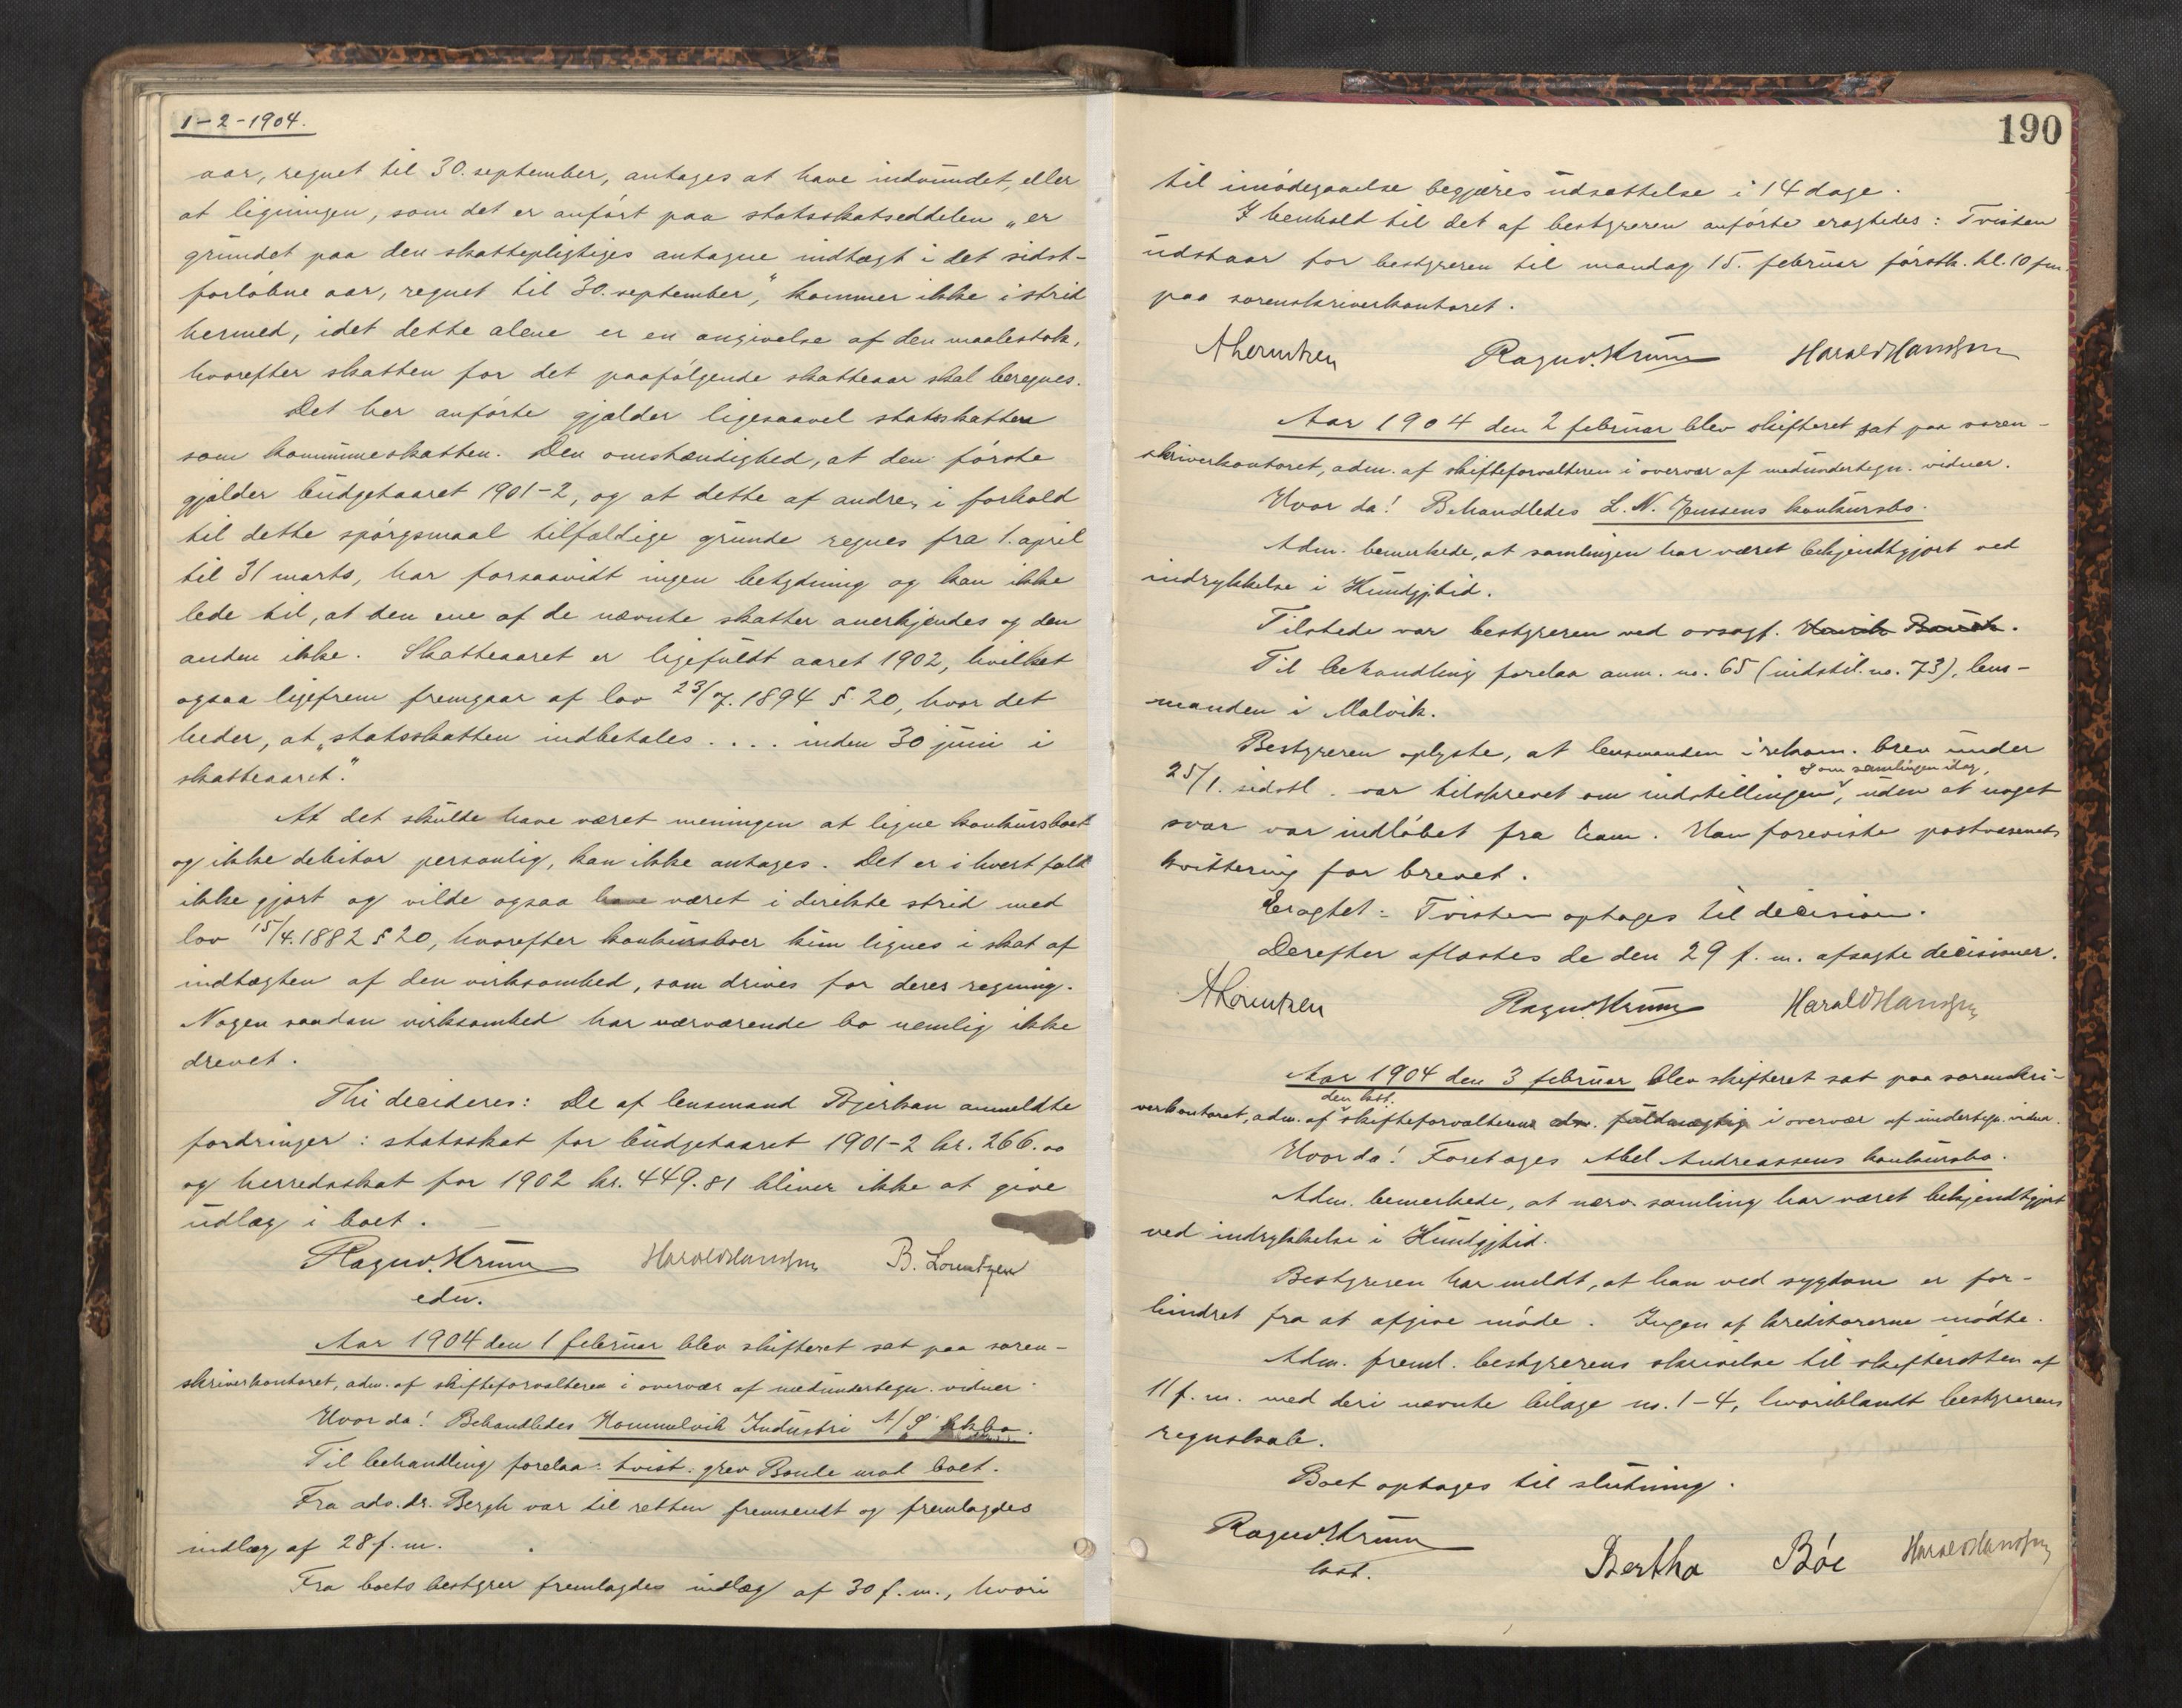 1-2-1904.
aar, regnet til 30. september, antages at have indvundet, eller
at ligningen, som det er anført paa statsskatseddelen „er
grundet paa den skattepligtiges antagne indtægt i det sidst-
forløbne aar, regnet til 30. september", kommer ikke i strid
hermed, idet dette alene er en angivelse af den maalestok,
hvorefter skatten for det paafølgende skatteaar skal beregnes.
Det her anførte gjælder ligesaavel statsskatten
som kommuneskatten. Den omstændighed, at den første
gjælder budgetaaret 1901-2, og at dette af andre, i forhold
til dette spørgsmaal tilfældige grunde regnes fra 1. april
til 31 marts, har forsaavidt ingen betydning og kan ikke
lede til, at den ene af de nævnte skatter anerkjendes og den
anden ikke. Skatteaaret er ligefuldt aaret 1902, hvilket
ogsaa ligefrem fremgaar af lov 23/7. 1894 § 20, hvor det
heder, at „statsskatten indbetales .... inden 30 juni i
skatteaaret."
At det skulde have været meningen at ligne konkursboet
og ikke debitor personlig, kan ikke antages. Det er i hvert fald
ikke gjort og vilde ogsaa have været i direkte strid med
lov 15/4. 1882 § 20, hvorefter konkursboer kun lignes i skat af
indtægten af den virksomhed, som drives for deres regning.
Nogen saadan virksomhed har nærværende bo nemlig ikke
drevet.
Thi decideres: De af lensmand Bjerkan anmeldte
fordringer: statsskat for budgetaaret 1901-2 kr. 266.00
og herredsskat for 1902 kr. 449.81 bliver ikke at give
udlæg i boet.
Ragnv. Krum Harald Hansen B. Lorentzen
edv.
Aar 1904 den 1 februar blev skifteret sat paa soren-
skriverkontoret, adm. af skifteforvalteren i overvær af medundertegn. vidner.
Hvor da! Behandledes Hommelvik Industri A/S kkbo.
Til behandling forelaa: tvist. grev Bonde mod boet.
Fra adv. dr. Bergh var til retten fremsendt og fremlagdes
indlæg af 28 f. m.
Fra boets bestyrer fremlagdes indlæg af 30 f. m., hvori
190
til imødegaaelse begjæres udsættelse i 14 dage.
I henhold til det af bestyreren anførte eragtedes: Tvisten
udstaar for bestyreren til mandag 15. februar førstk. kl. 10 fm.
paa sorenskriverkontoret.
A Lorentzen Ragnv. Krum Harald Hansen
Aar 1904 den 2 februar blev skifteret sat paa soren-
skriverkontoret, adm. af skifteforvalteren i overvær af medundertegn. vidner.
Hvor da! Behandledes L. N. Jenssens konkursbo.
Adm. bemerkede, at samlingen har været bekjendtgjort ved
indrykkelse i Kundgjtid.
Tilstede var bestyreren ved ovsagf. Henrik
Til behandling forelaa anm. no. 65 (indstil. no. 73), lens-
manden i Malvik.
Bestyreren oplyste, at lensmanden i rekom. brev under
og om samlingen idag,
25/1. sidstl. var tilskrevet om indstillingen, uden at noget
svar var indløbet fra ham. Han foreviste postvæsenets
kvittering for brevet.
Eragtet: Tvisten optages til decision.
Derefter aflæstes de den 29 f. m. afsagte decisioner.
A Lorentzen Ragnv. Krum Harald Hansen
Aar 1904 den 3 februar blev skifteret sat paa sorenskri-
den kst.
verkontoret, adm. af skifteforvalterens edv. fuldmægtig i overvær af undertegn. vidner.
Hvor da! Foretoges Abel Andreassens konkursbo.
Adm. bemerkede, at nærv. samling har været bekjendtgjort
ved indrykkelse i Kundgjtid.
Bestyreren har meldt, at han ved sygdom er for-
hindret fra at afgive møde. Ingen af kreditorerne mødte.
Adm. freml. bestyrerens skrivelse til skifteretten af
11 f. m. med deri nævnte bilage no. 1-4, hvoriblandt bestyrerens
regnskab.
Boet optages til slutning.
Ragnv. Krum
kst.
Bertha Bøe Harald Hansen